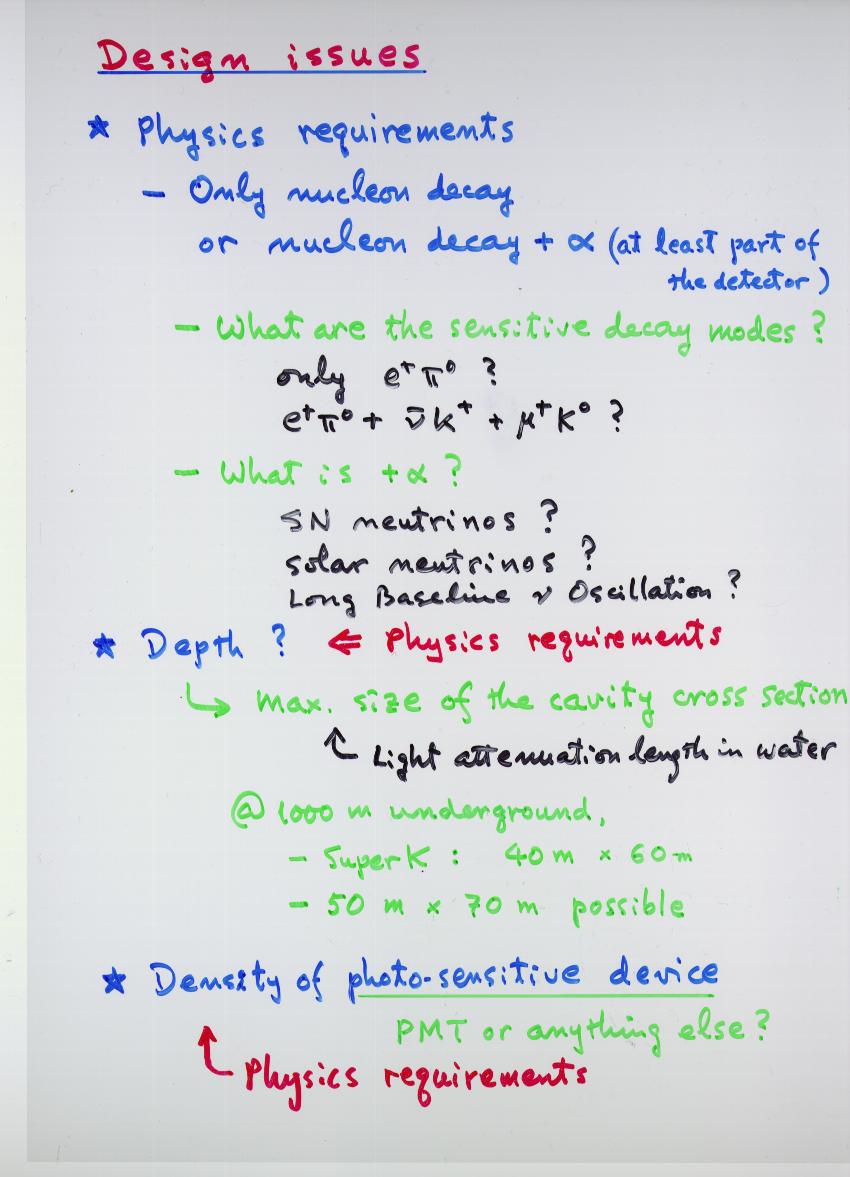 Design issues
★ Physics requirements
– Only nucleon decay
or nucleon decay + α (at least part of
the detector)
– What are the sensitive decay modes ?
only e⁺π⁰ ?
e⁺π⁰ + ν̄K⁺ + μ⁺K⁰ ?
– What is +α ?
SN neutrinos ?
solar neutrinos ?
Long Baseline ν Oscillation ?
★ Depth ? ⇐ Physics requirements
↳ max. size of the cavity cross section
↑ Light attenuation length in water
@ 1000 m underground,
– SuperK : 40 m × 60 m
– 50 m × 70 m possible
★ Density of photo-sensitive device
PMT or anything else ?
↑ Physics requirements